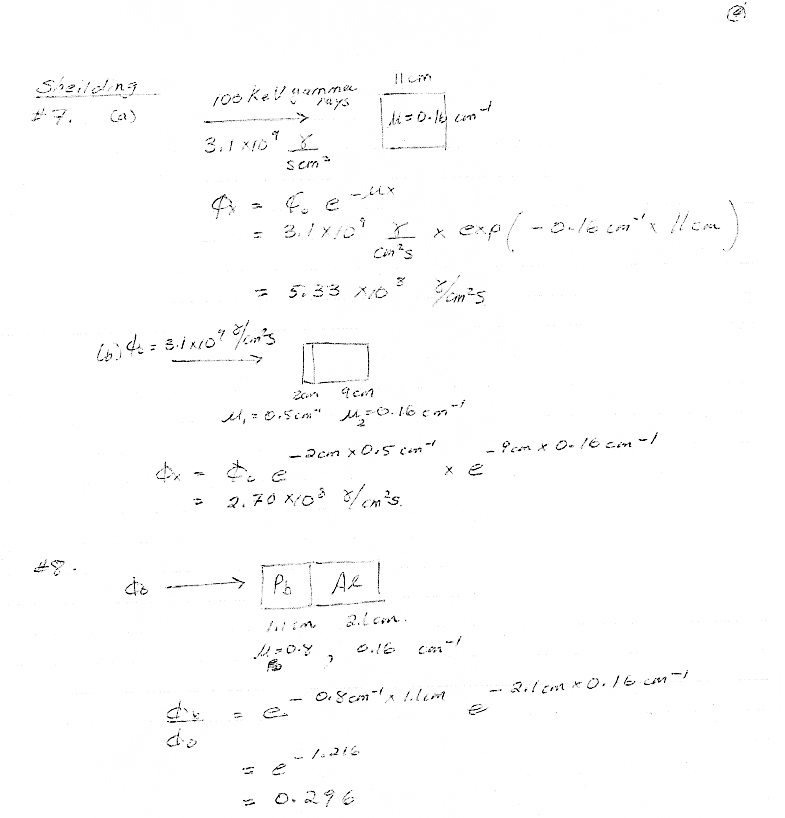 ④
Sheilding
#7. (a) 100 KeV gamma rays
3.1 × 10⁹ γ/s cm²
11 cm
μ = 0.16 cm⁻¹
ϕₓ = ϕ₀ e^(-μx)
= 3.1 × 10⁹ γ/cm²s × exp(-0.16 cm⁻¹ × 11 cm)
= 5.33 × 10⁸ γ/cm²s
(b) ϕ₀ = 3.1 × 10⁹ γ/cm²s
2cm 9cm
μ₁ = 0.5 cm⁻¹ μ₂ = 0.16 cm⁻¹
ϕₓ = ϕ₀ e^(-2cm × 0.5 cm⁻¹) × e^(-9cm × 0.16 cm⁻¹)
= 2.70 × 10⁸ γ/cm²s.
#8.
ϕ₀ → Pb Al
1.1 cm 2.1 cm.
μ = 0.8, 0.16 cm⁻¹
ϕₓ/ϕ₀ = e^(-0.8 cm⁻¹ × 1.1 cm) e^(-2.1 cm × 0.16 cm⁻¹)
= e^(-1.216)
= 0.296